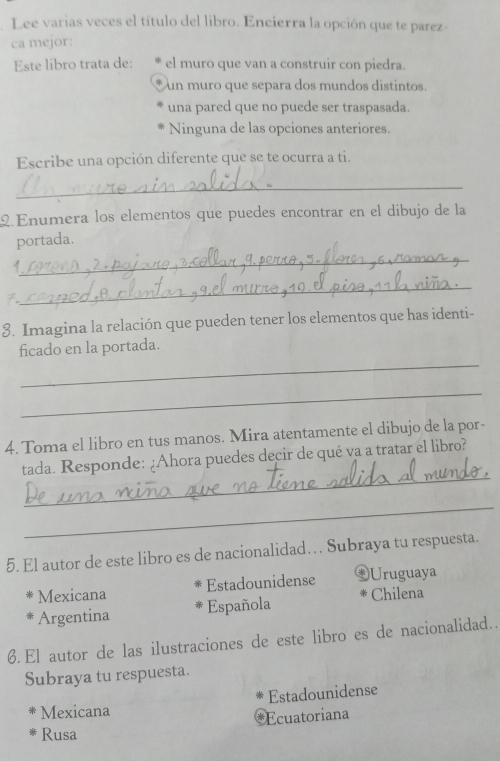 . Lee varias veces el título del libro. Encierra la opción que te parez-
ca mejor:
Este libro trata de: * el muro que van a construir con piedra.
* un muro que separa dos mundos distintos.
* una pared que no puede ser traspasada.
* Ninguna de las opciones anteriores.
Escribe una opción diferente que se te ocurra a ti.
Un muro sin salida.
2. Enumera los elementos que puedes encontrar en el dibujo de la
portada.
1. corona, 2. pajaro, 3. collar, 4. perro, 5. flores, 6.
7. 8. 9. el muro, 10. el piso, 11 la niña.
3. Imagina la relación que pueden tener los elementos que has identi-
ficado en la portada.
4. Toma el libro en tus manos. Mira atentamente el dibujo de la por-
tada. Responde: ¿Ahora puedes decir de qué va a tratar el libro?
De una niña que no tiene salida al mundo.
5. El autor de este libro es de nacionalidad... Subraya tu respuesta.
* Mexicana * Estadounidense * Uruguaya
* Argentina * Española * Chilena
6. El autor de las ilustraciones de este libro es de nacionalidad..
Subraya tu respuesta.
* Mexicana * Estadounidense
* Rusa * Ecuatoriana